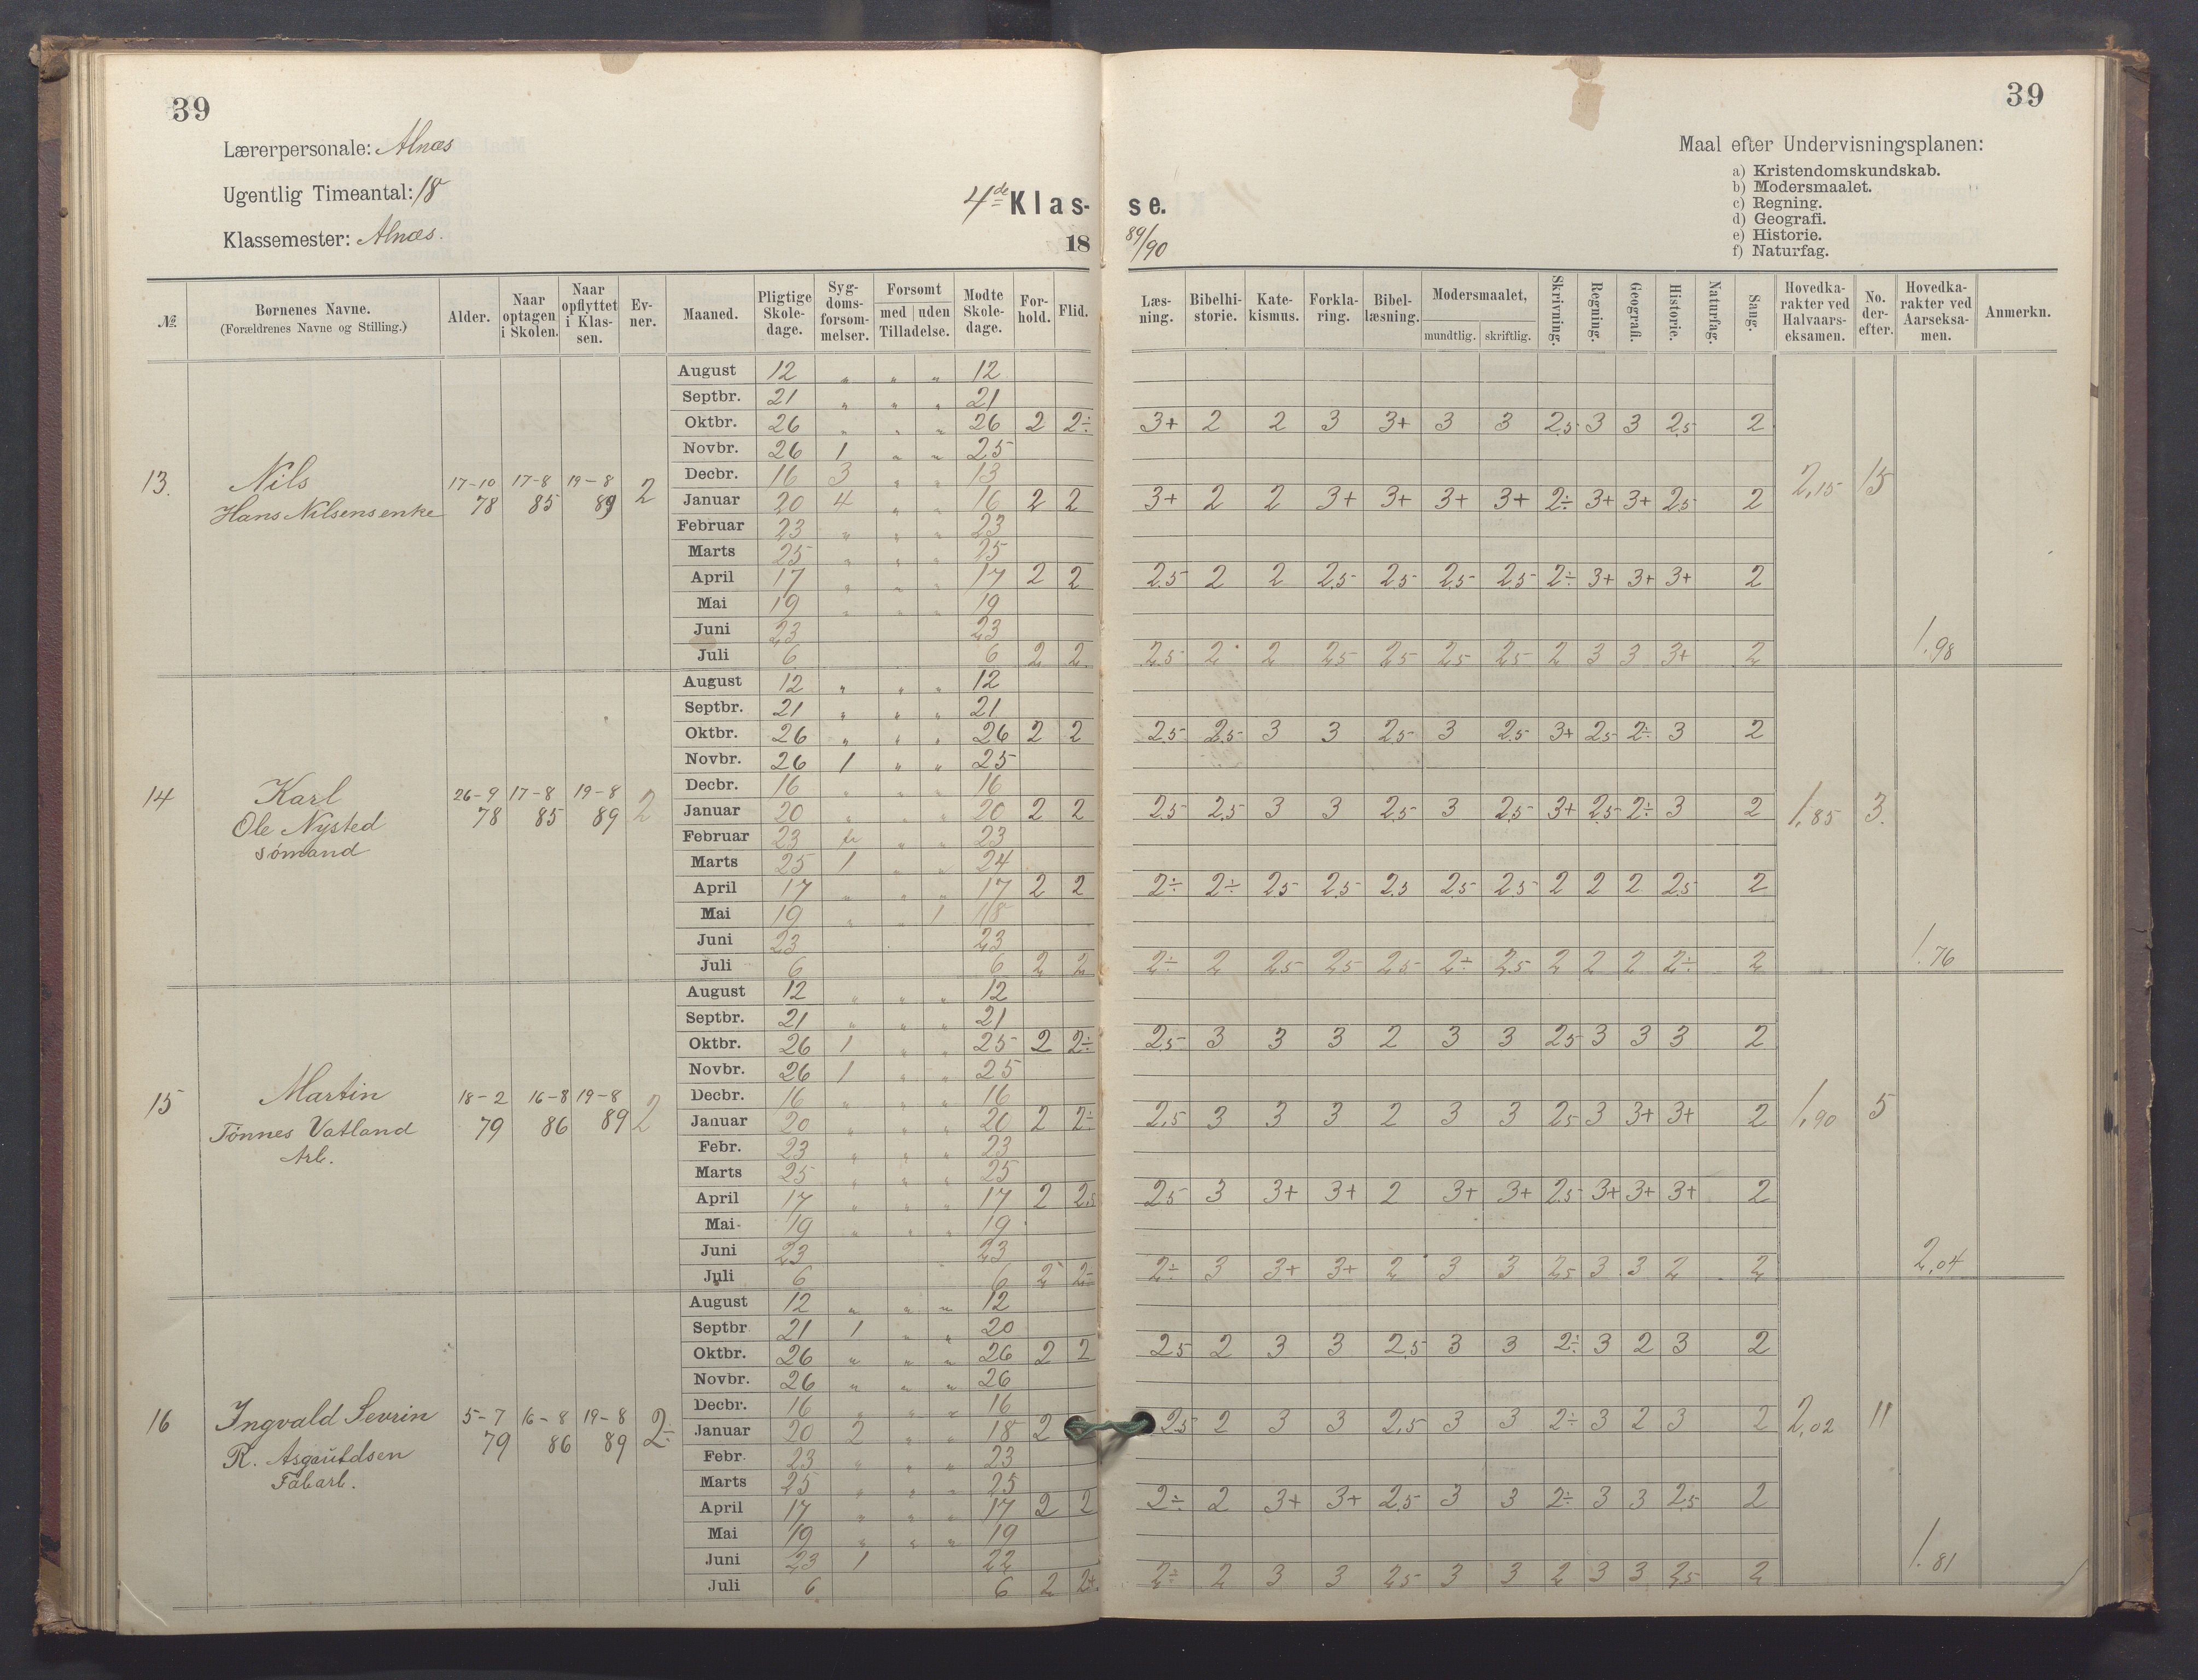 39
39
Lærerpersonale: Alnæs
Ugentlig Timeantal: 18
Klassemester: Alnæs.
4de Klasse.
1889/90
Maal efter Undervisningsplanen:
a) Kristendomskundskab.
b) Modersmaalet.
c) Regning.
d) Geografi.
e) Historie.
f) Naturfag.
№. Børnenes Navne. (Forældrenes Navne og Stilling.) Alder. Naar optagen i Skolen. Naar opflyttet i Klassen. Evner. Maaned. Pligtige Skoledage. Sygdomsforsømmelser. Forsømt med uden Tilladelse. Mødte Skoledage. Forhold. Flid. Læsning. Bibelhistorie. Katekismus. Forklaring. Bibellæsning. Modersmaalet, mundtlig. skriftlig. Skrivning. Regning. Geografi. Historie. Naturfag. Sang. Hovedkarakter ved Halvaarseksamen. No. derefter. Hovedkarakter ved Aarseksamen. Anmerkn.
13. Nils Hans Nilsens enke 17-10 78 17-8 85 19-8 89 2
August 12 " " " 12
Septbr. 21 " " " 21
Oktbr. 26 " " " 26 2 2÷ 3+ 2 2 3 3+ 3 3 2.5 3 3 2.5 2
Novbr. 26 1 " " 25
Decbr. 16 3 " " 13
Januar 20 4 " " 16 2 2 3+ 2 2 3+ 3+ 3+ 3+ 2÷ 3+ 3+ 2.5 2 2,15 15
Februar 23 " " " 23
Marts 25 " " " 25
April 17 " " " 17 2 2 2.5 2 2 2.5 2.5 2.5 2.5 2÷ 3+ 3+ 3+ 2
Mai 19 " " " 19
Juni 23 23
Juli 6 6 2 2 2.5 2 2 2.5 2.5 2.5 2.5 2 3 3 3+ 2 1.98
14 Karl Ole Nysted Sömand 26-9 78 17-8 85 19-8 89 2
August 12 " " " 12
Septbr. 21 " " " 21
Oktbr. 26 " " " 26 2 2 2.5 2.5 3 3 2.5 3 2.5 3+ 2.5 2÷ 3 2
Novbr. 26 1 " " 25
Decbr. 16 " " " 16
Januar 20 " " " 20 2 2 2.5 2.5 3 3 2.5 3 2.5 3+ 2.5 2÷ 3 2 1.85 3.
Februar 23 " " 23
Marts 25 1 " " 24
April 17 " " " 17 2 2 2÷ 2÷ 2.5 2.5 2.5 2.5 2.5 2 2 2 2.5 2
Mai 19 " " 1 18
Juni 23 23
Juli 6 6 2 2 2÷ 2 2.5 2.5 2.5 2÷ 2.5 2 2 2 2÷ 2 1.76
15 Martin Tönnes Vatland Arb. 18-2 79 16-8 86 19-8 89 2
August 12 " " " 12
Septbr. 21 " " " 21
Oktbr. 26 1 " " 25 2 2÷ 2.5 3 3 3 2 3 3 2.5 3 3 3 2
Novbr. 26 1 " " 25
Decbr. 16 " " " 16
Januar 20 " " " 20 2 2÷ 2.5 3 3 3 2 3 3 2.5 3 3+ 3+ 2 1,90 5
Febr. 23 " " " 23
Marts 25 " " " 25
April 17 " " " 17 2 2.5 2.5 3 3+ 3+ 2 3+ 3+ 2.5 3+ 3+ 3+ 2
Mai 19 " " " 19
Juni 23 23
Juli 6 6 2 2÷ 2÷ 3 3+ 3+ 2 3 3 2.5 3 3 2 2 2,04
16 Ingvald Sevrin R. Asgautdsen Fabarb. 5-7 79 16-8 86 19-8 89 2÷
August 12 " " " 12
Septbr 21 1 " " 20
Oktbr. 26 " " " 26 2 2 2.5 2 3 3 2.5 3 3 2÷ 3 2 3 2
Novbr. 26 " " " 26
Decbr. 16 " " " 16
Januar 20 2 " " 18 2 2.5 2 3 3 2.5 3 3 2÷ 3 2 3 2 2,02 11
Febr. 23 " " " 23
Marts 25 " " " 25
April 17 " " " 17 2 2 2÷ 2 3+ 3+ 2.5 3 3 2÷ 3 3 2.5 2
Mai 19 " " " 19
Juni 23 1 22
Juli 6 6 2 2+ 2÷ 2 3 3 2.5 3 3 2 3 3 2.5 2 1.81